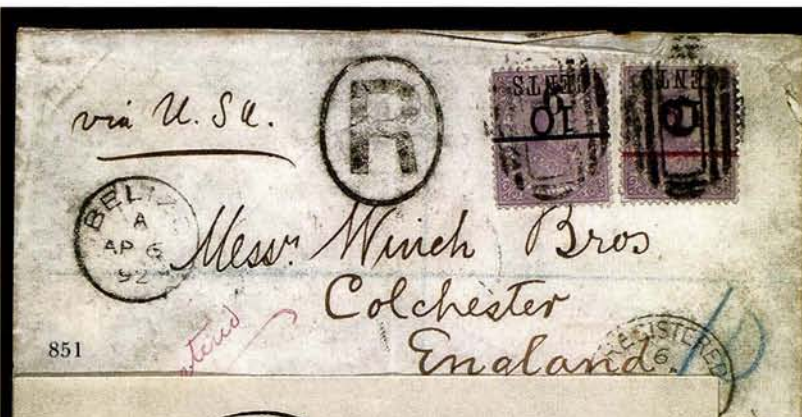 via U. Sa.
R
CENTS
10
BELIZ
A
AP 6
92
Messrs Winch Bros
Colchester
England
REGISTERED
6
851